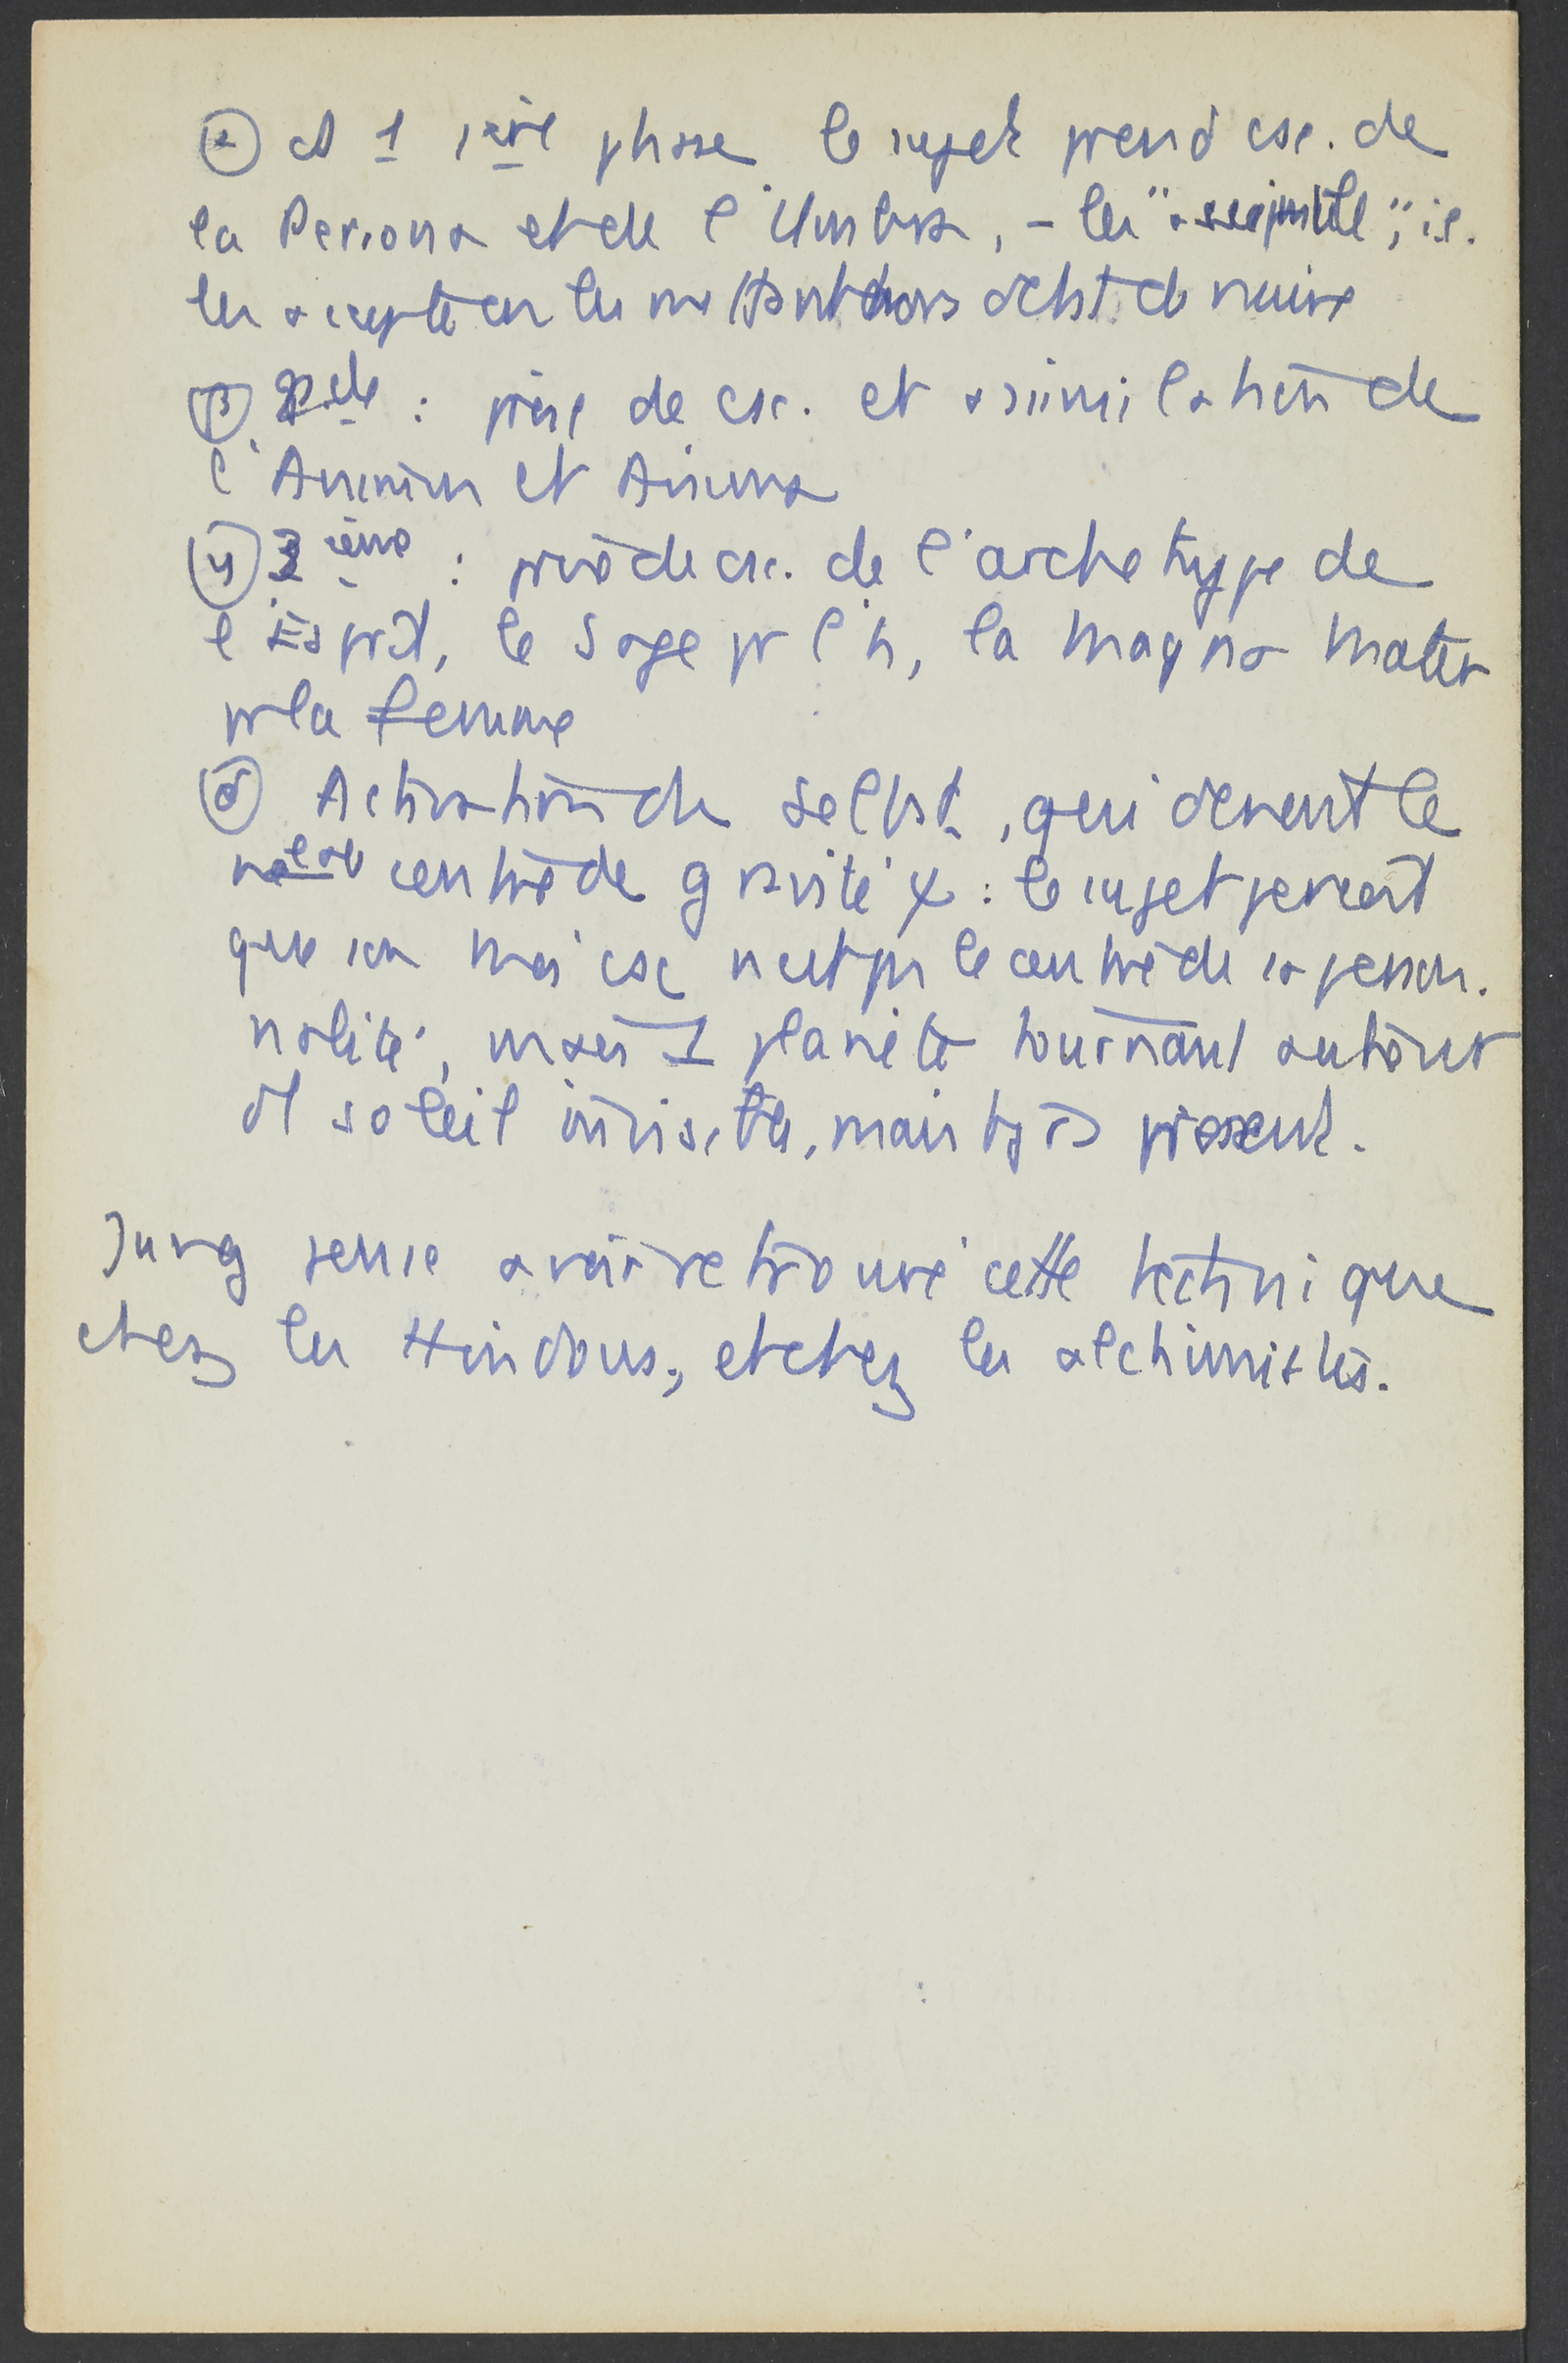 (α) ds 1 1ère phase le sujet prend csc. de
la Persona et de l'Umbra, - les "assimile", i.e.
les accepte en les mettant hors d'état de nuire
(β) 2de : prise de csc. et assimilation de
l'Animus et Anima
(γ) 3ième : prise de csc. de l'archetype de
l'Esprit, le Sage pr l'h, la Magna Mater
pr la femme
(δ) Activation du Selbst, qui devient le
centre de gravité ψ : le sujet perçoit
que son moi csc n'est pas le centre de sa person.
nalité, mais 1 planète tournant autour
d' soleil invisible, mais tjs présent.
Jung pense avoir retrouvé cette technique
chez les Hindous, et chez les alchimistes.